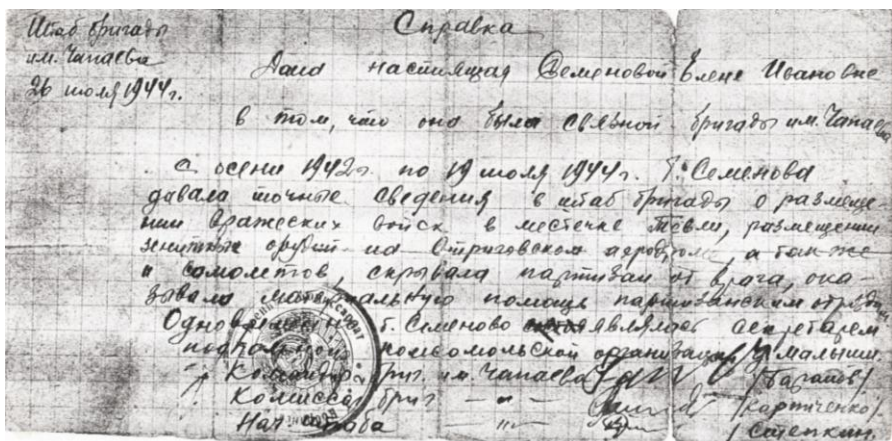 Штаб бригады
им. Чапаева
26 июля 1944 г.
Справка
Дана настоящая Семеновой Елене Ивановне
в том, что она была связной бригады им. Чапаева
с осени 1942 г. по 19 июля 1944 г. т. Семенова
давала точные сведения в штаб бригады о размеще-
нии вражеских войск в местечке Тевли, размещении
зенитных орудий на Стриговском аеродроме, а также
и самолетов, скрывала партизан от врага, ока-
зывала материальную помощь партизанским отрядам
Одновременно т. Семенова являлась секретарем
подпольной комсомольской организации
Командир бриг. им. Чапаева /Баранов/
Комиссар бриг — " — /Картиченко/
Нач штаба — " — /Степкин/